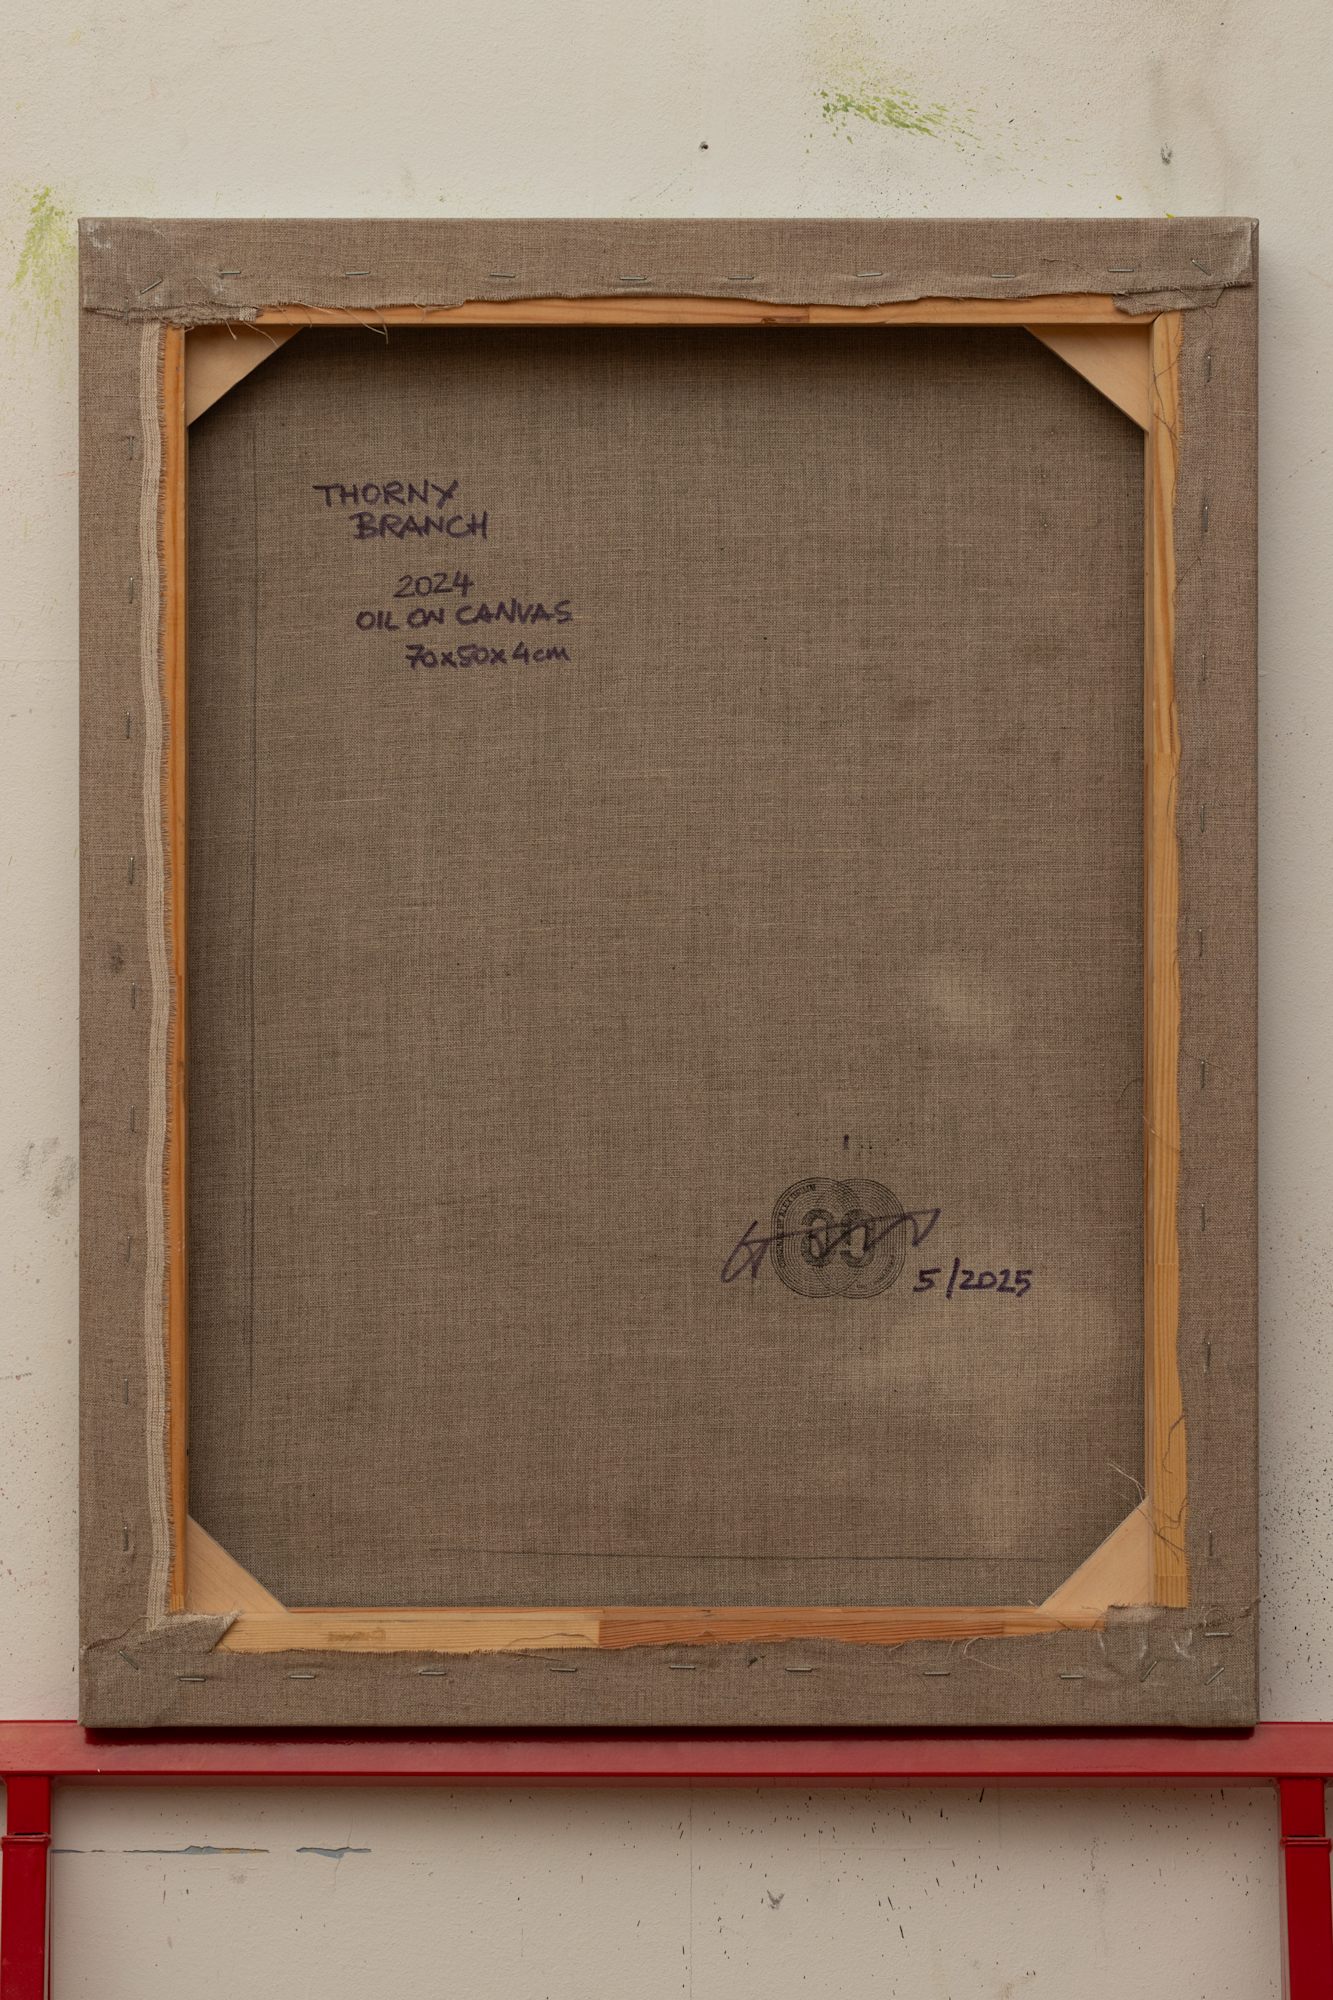 THORNY
BRANCH
2024
OIL ON CANVAS
70x50x4cm
5/2025